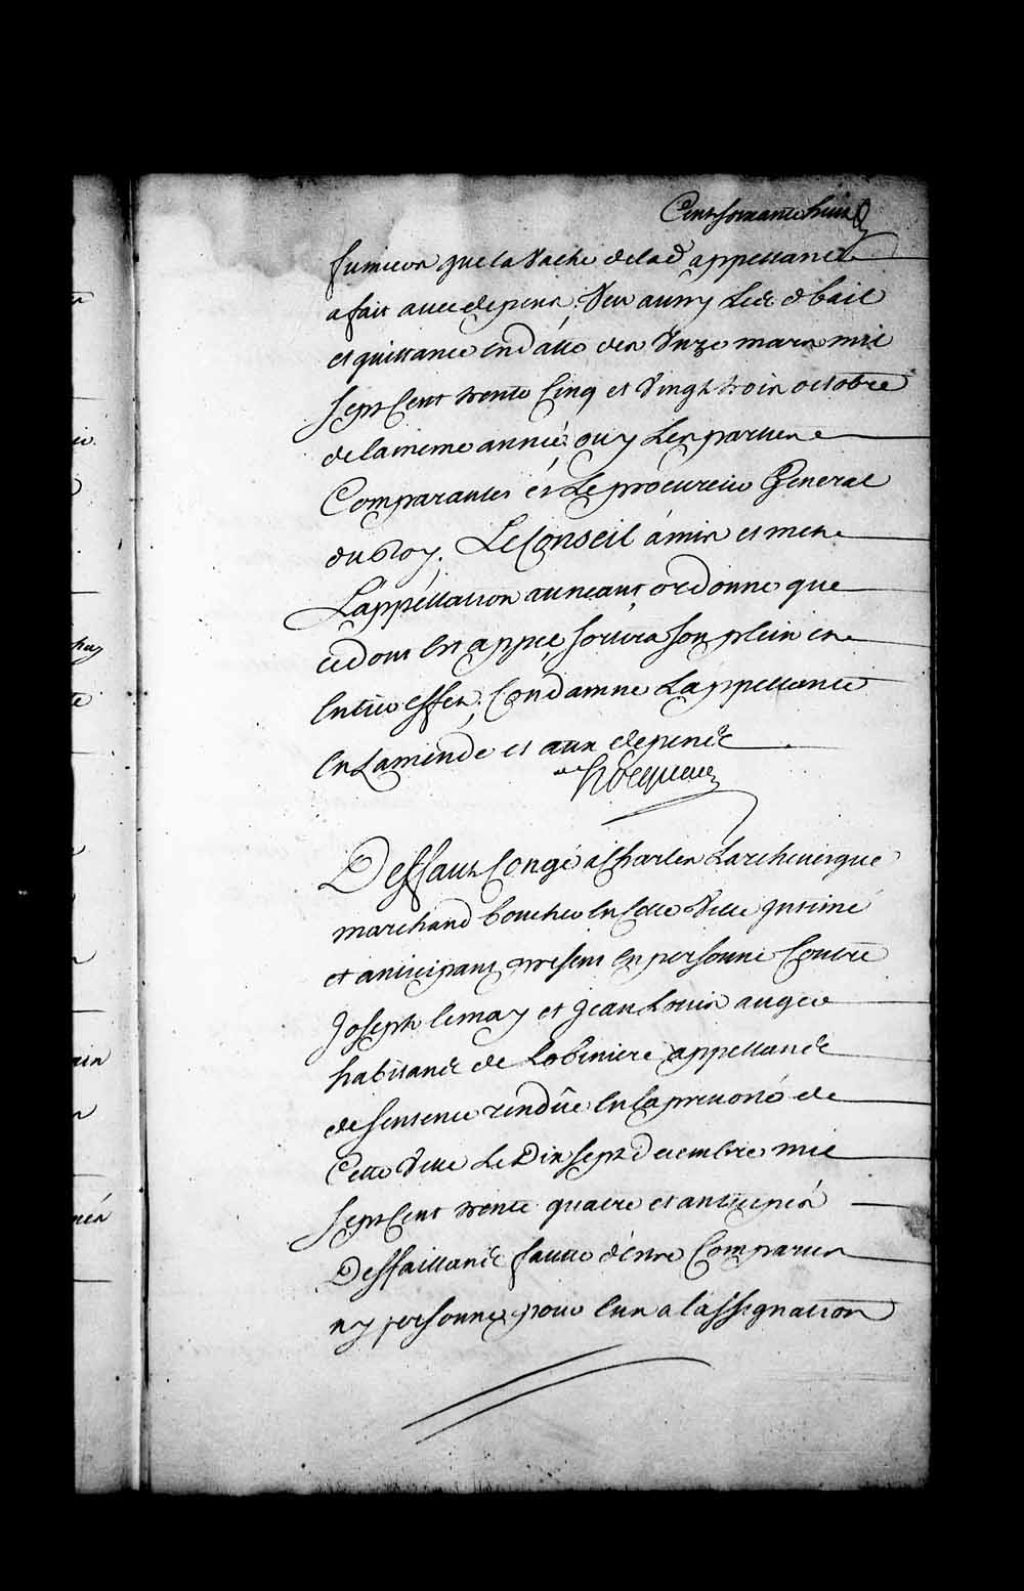 Cent soixante huit
fumier que la Vache de lad appellante
a fait avec depens, Veu aussy Led. bail
et quittance en datte des Unze mars mil
sept Cent trente Cinq et Vingt trois octobre
de la meme année; ouy Les parties
Comparantes et Le procureur General
du Roy. Le Conseil à mis et met
L'appellation au neant, ordonne que
ce dont est appel, sortira son plein et
Entier effet; Condamne Lappellante
En Lamende et aux depens
Hocquart
Deffaut Congé a Charles Larchevesque
marchand boucher en Cette Ville Intimé
et anticipant present en personne Contre
Joseph Lemay et Jean Louis auger
habitans de Lobiniere appellans
de sentence rendüe En la prevoté de
Cette Ville Le Dix sept Decembre mil
sept Cent trente quatre et anticipés
Deffaillans faute d'être Comparus
ny personne pour Eux a l'assignation